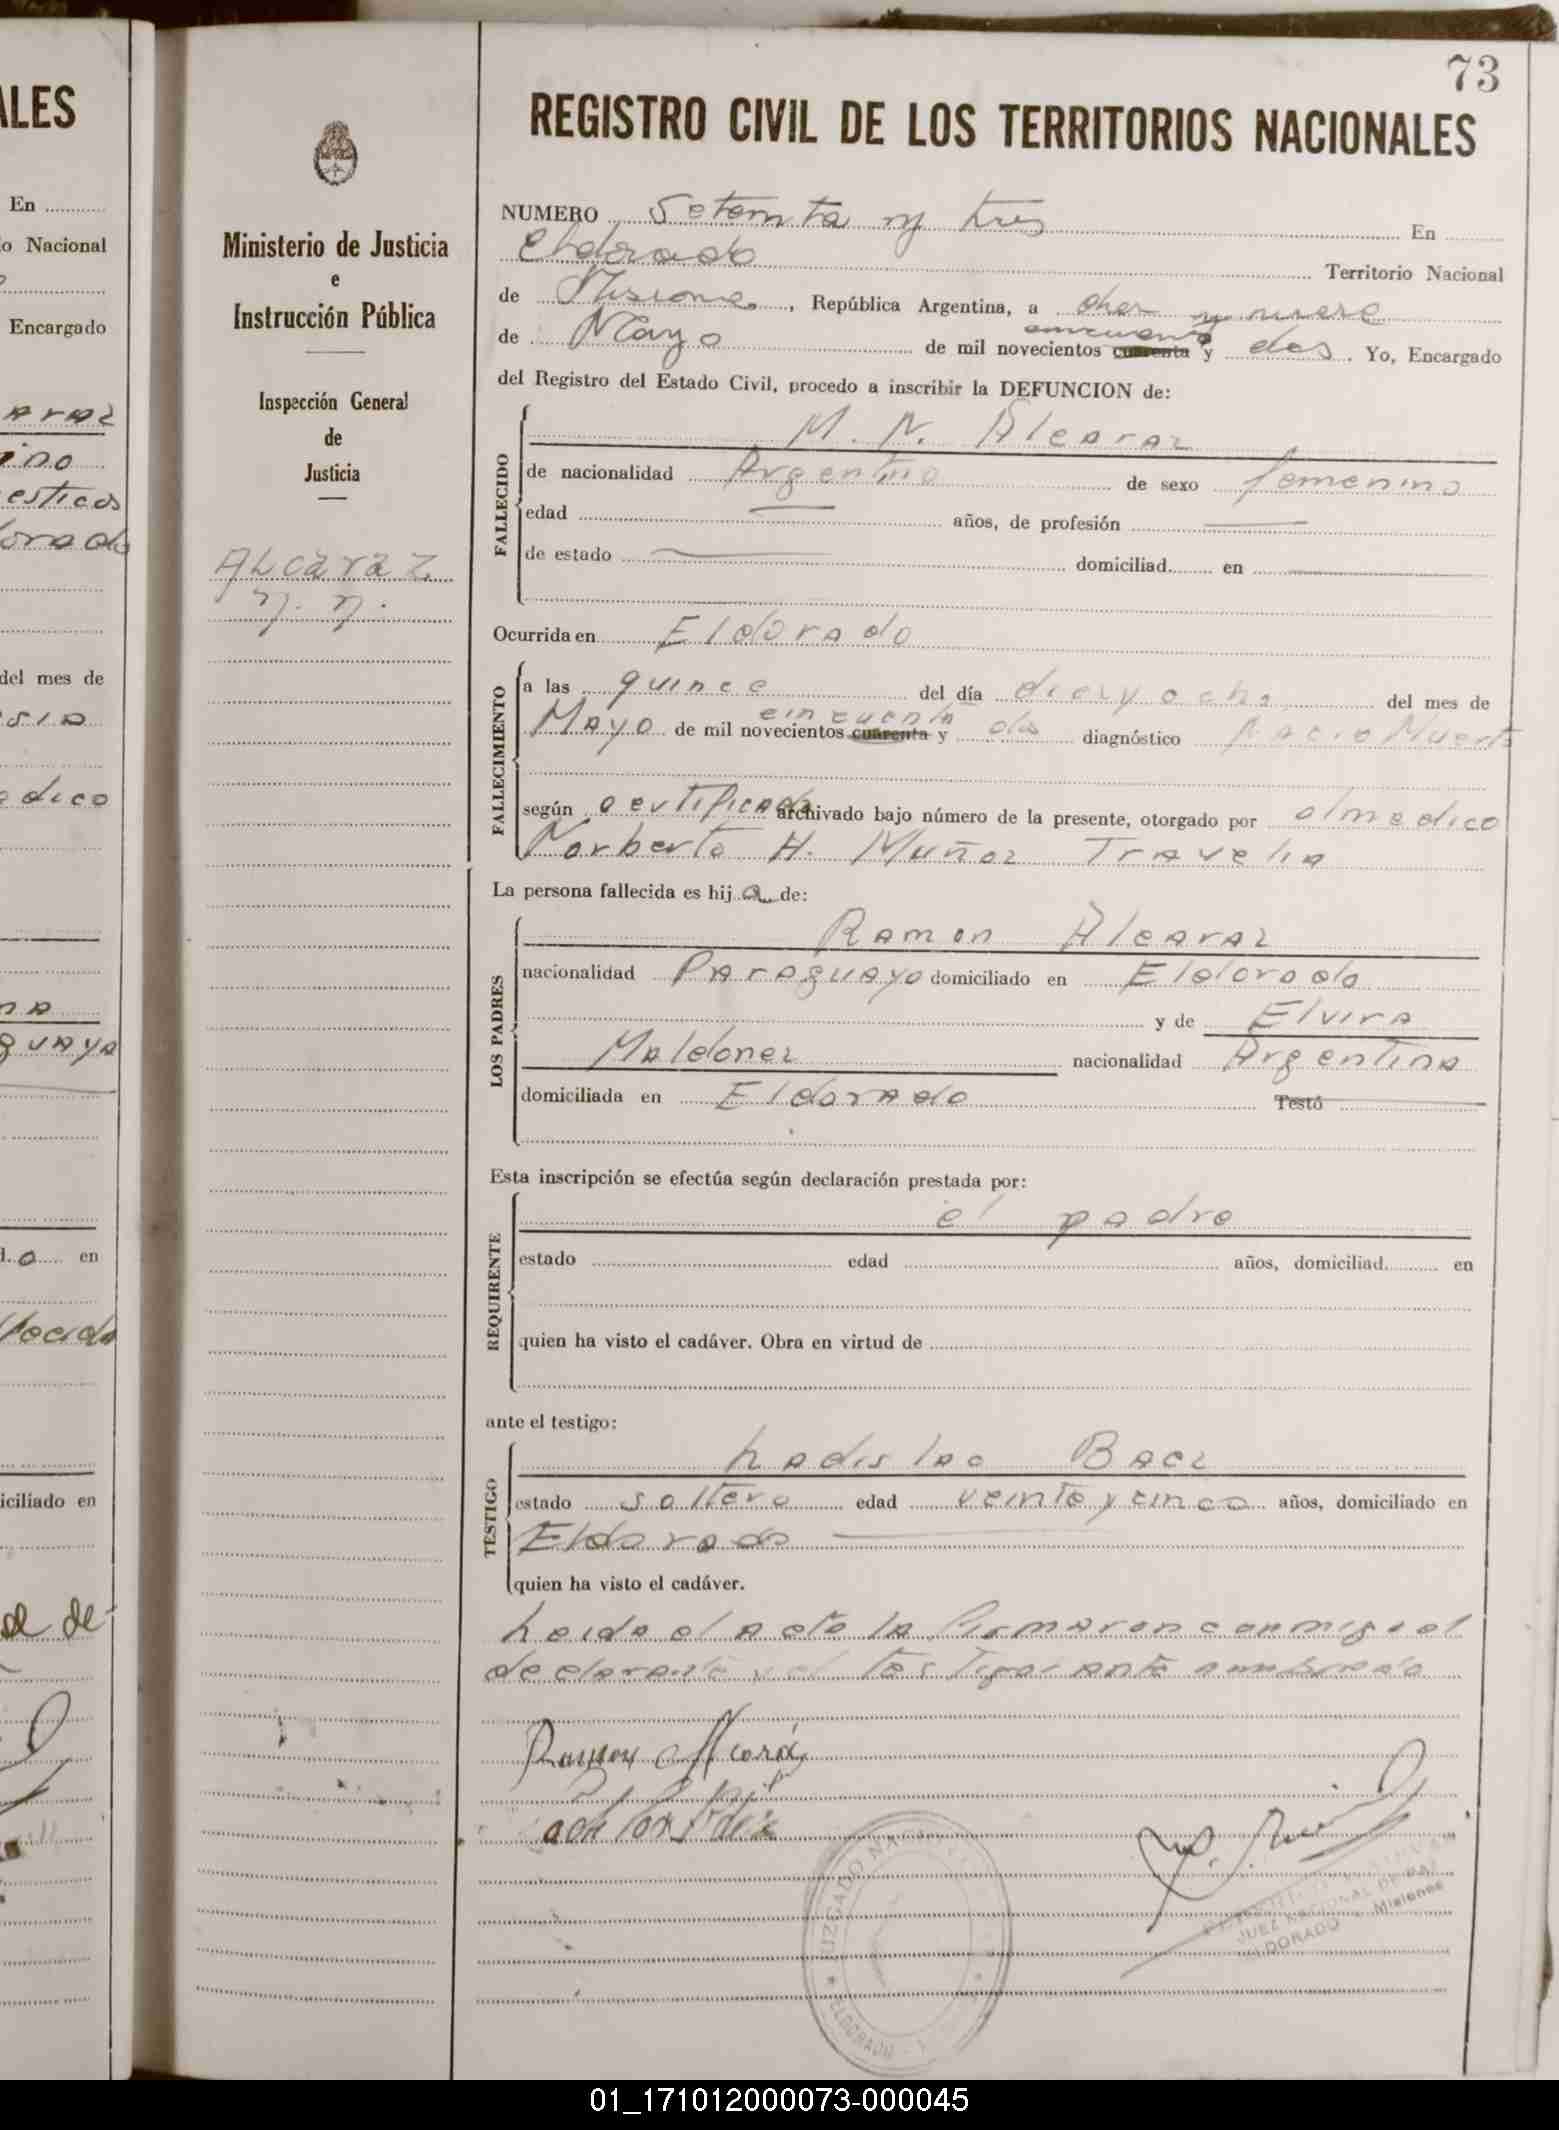 73
REGISTRO CIVIL DE LOS TERRITORIOS NACIONALES
Ministerio de Justicia
e
Instrucción Pública
Inspección General
de
Justicia
Alcaraz
n. n.
NUMERO Setenta y tres En
Eldorado Territorio Nacional
de Misiones, República Argentina, a diez y nueve
de Mayo de mil novecientos cuarenta cincuenta y dos. Yo, Encargado
del Registro del Estado Civil, procedo a inscribir la DEFUNCION de:
FALLECIDO
N. N. Alcaraz
de nacionalidad Argentino de sexo femenino
edad años, de profesión
de estado domiciliad en
Ocurrida en Eldorado
FALLECIMIENTO
a las quince del día diez y ocho del mes de
Mayo de mil novecientos cuarenta cincuenta y dos diagnóstico Nacio Muerto
según certificado archivado bajo número de la presente, otorgado por el medico
Norberto H. Muñoz Travelia
La persona fallecida es hija de:
LOS PADRES
Ramon Alcaraz
nacionalidad Paraguayo domiciliado en Eldorado
y de Elvira
Maldonez nacionalidad Argentina
domiciliada en Eldorado Testó
Esta inscripción se efectúa según declaración prestada por:
REQUIRENTE
el padre
estado edad años, domiciliad en
quien ha visto el cadáver. Obra en virtud de
ante el testigo:
TESTIGO
Ladislao Bacz
estado soltero edad veinte y cinco años, domiciliado en
Eldorado
quien ha visto el cadáver.
Leida el acta la firmaron conmigo el
declarante y el testigo ante nombrado
Ramon Alcaráz
JUZGADO NA
ELDORADO
JUEZ NACIONAL DE PAZ
ELDORADO - Misiones
ALES
En
o Nacional
Encargado
araz
ino
esticos
orado
del mes de
esia
edico
na
guaya
d.o en
iciliado en
de
01_171012000073-000045